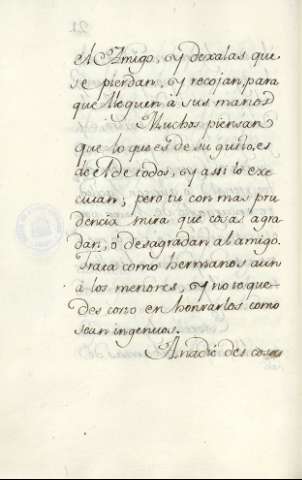 el Amigo, y dexalas que
se pierdan, y recojan, para
que lleguen à sus manos
Muchos piensan
que lo que es de su gusto, es
de el de todos, y assi lo exe
cutan; pero tu con mas pru
dencia mira que cosas agra
dan, ò desagradan al amigo.
Trata como hermanos aun
à los menores, y no te que
des corto en honrarlos como
sean ingenuos.
A nadie des cosas